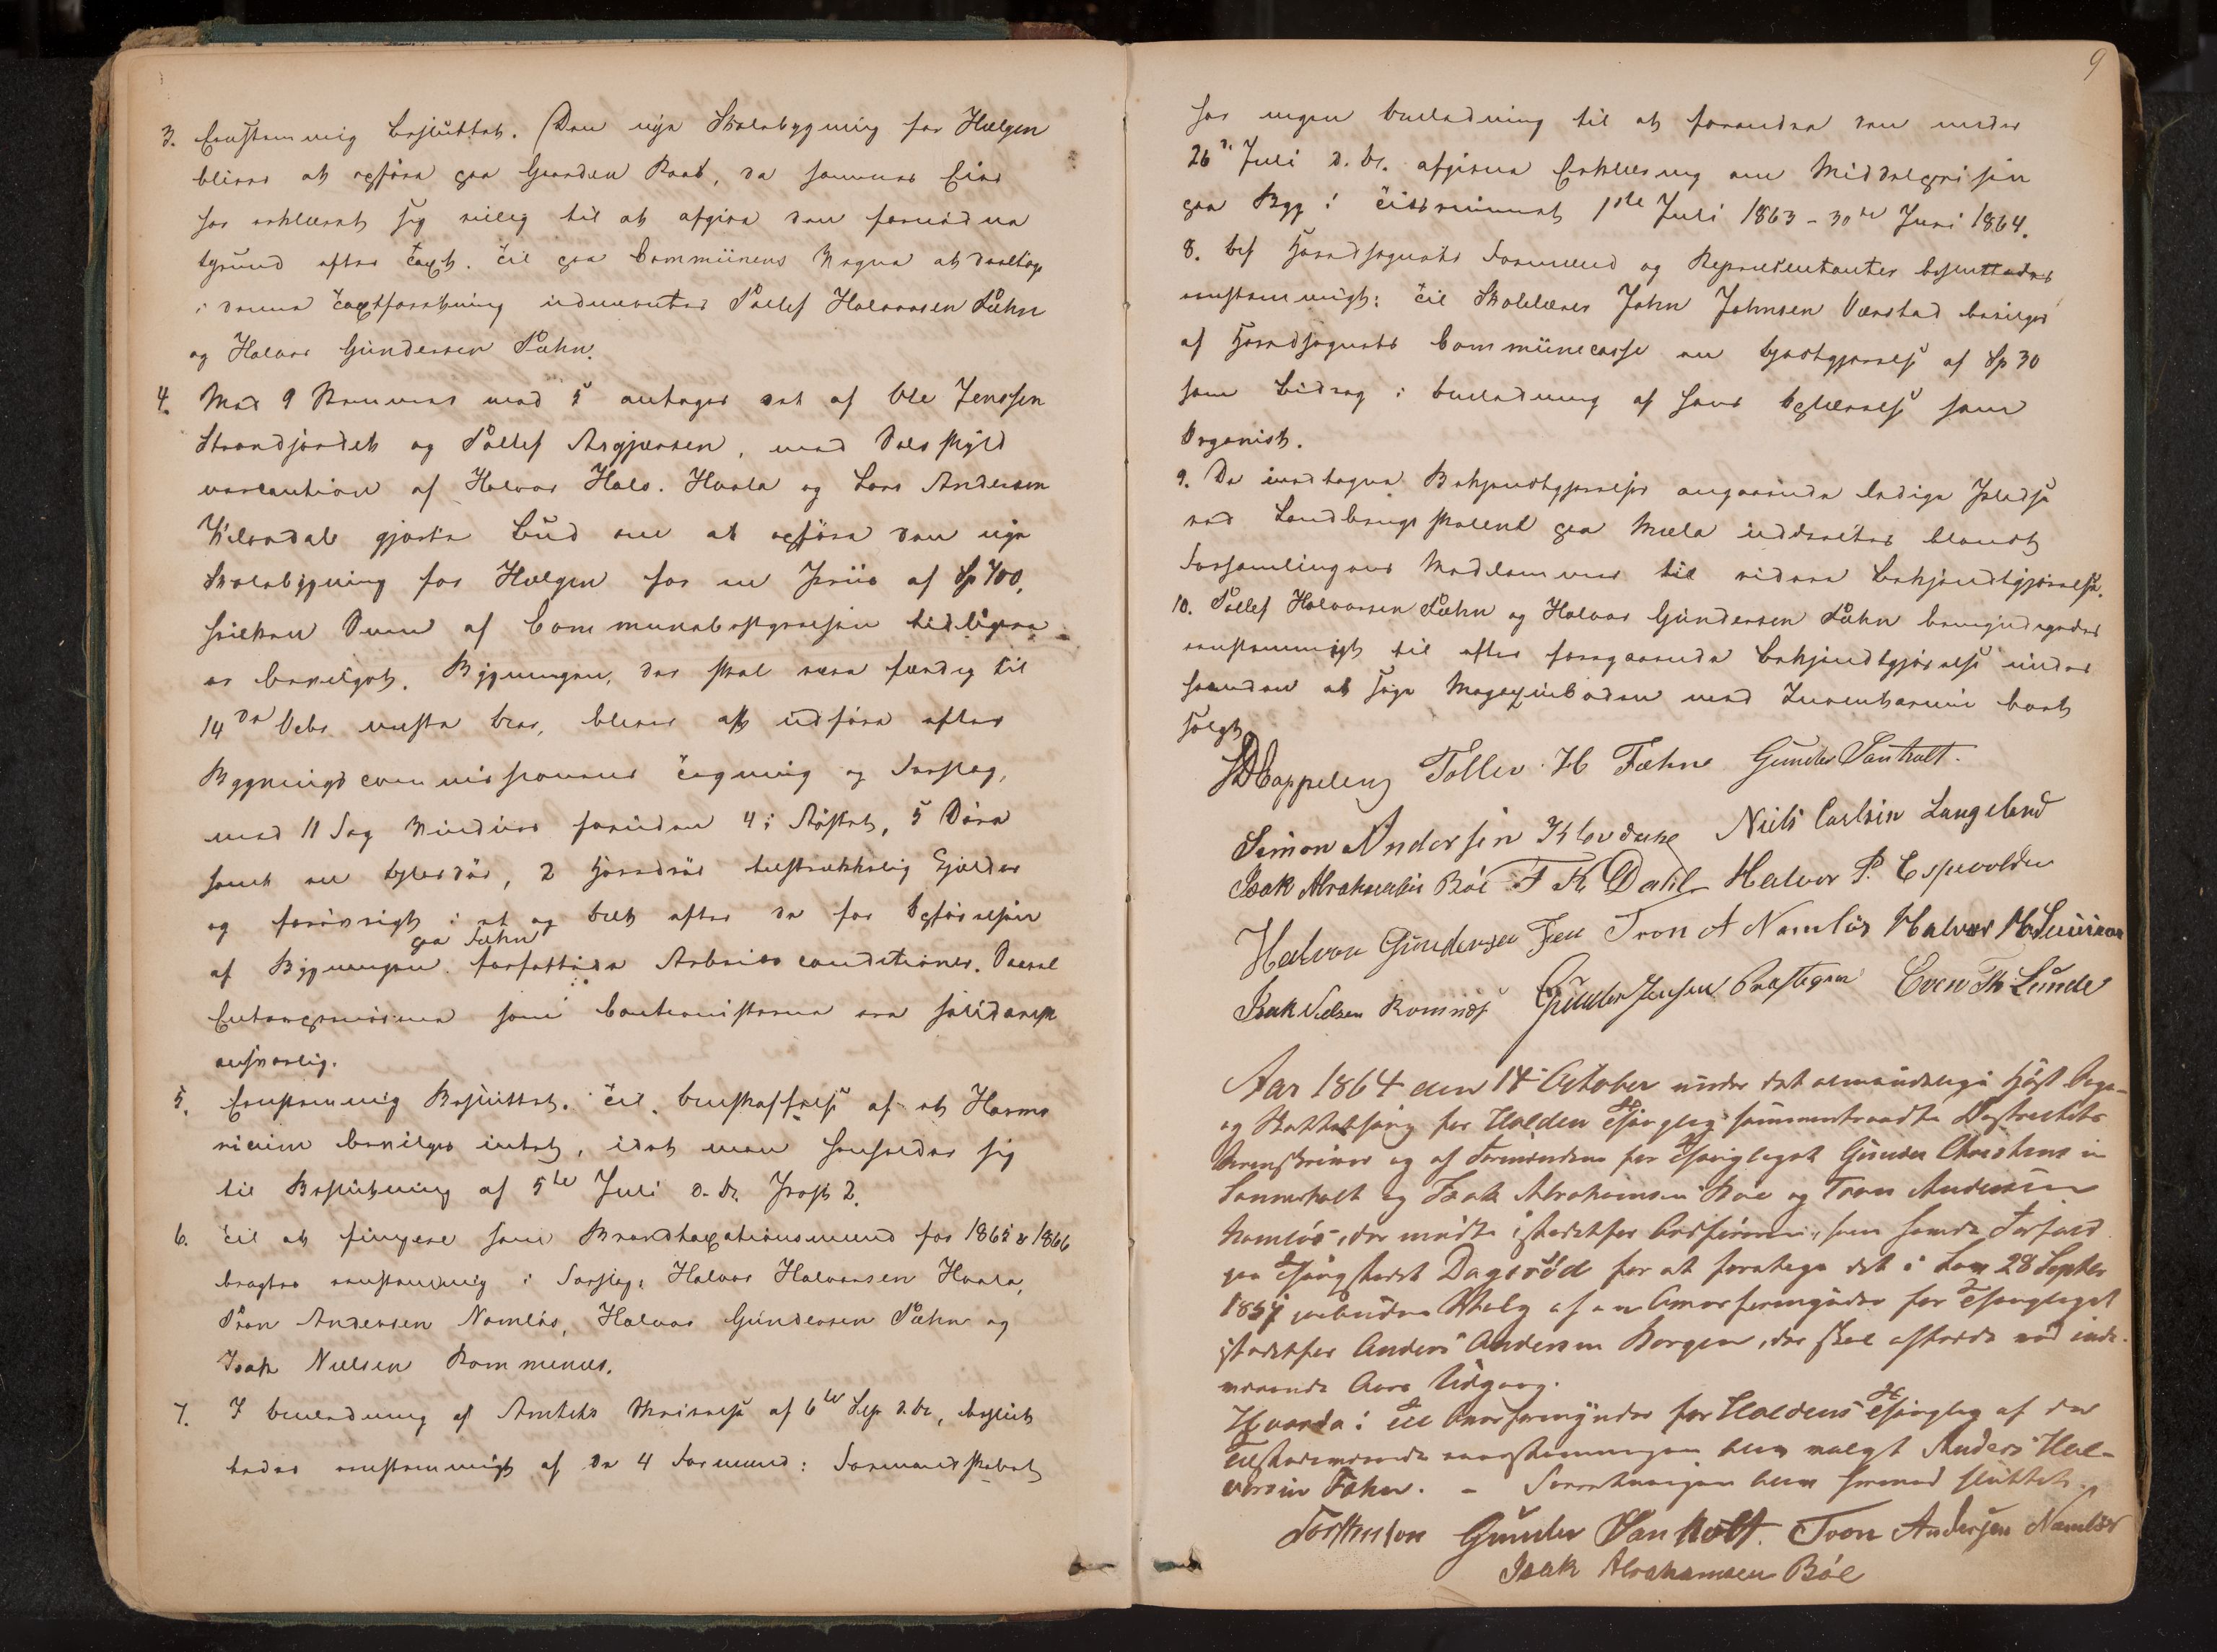 3. Eenstemmig besluttet. Den nye Skolebygning for Hælgen
bliver at opføre paa Gaarden Kaas, da sammes Eier
har erklæret sig villig til at afgive den fornødne
Grund efter Taxt. Til paa Communens Vegne at deeltage
i denne Taxtforretning udnævntes Tollef Halvorsen Fæhn
og Halvor Gundersen Fæhn.
4. Med 9 Stemmer mod 5 antages det af Ole Jenssen
Strandjordet og Tollef Asgjersen, med Selvskyld
nercaution af Halvor Halv. Hvala og Lars Andersen
gjorte Bud om at opføre den nye
Skolebygning for Hælgen for en Priis af Sp 400,
hvilken Sum af Communebestyrelsen tidligere
er bevilget. Bygningen, der skal være færdig til
14de Octbr næste Aar, bliver at udføre efter
Bygningscommissionens Tegning og Forslag,
med 11 Fag Vinduer foruden 4 i Røstet, 5 Døre
samt en Gloedør, 2 tilstrækkelig Gjælder
og forøvrigt i et og Alt efter de for Opførelsen
paa Fæhn
af Bygningen forfattede Arbeids conditioner. Saavel
Entrepreneurerne som Cautionisterne ere solidarisk
ansvarlig.
5. Eenstemmig Besluttet. Til Anskaffelse af et Harmo
nicum bevilges intet, idet man henholder sig
til Beslutning af 5te Juli d. Ar. Post 2.
6. Til at fungere som Brandtaxationsmænd for 1865 & 1866
bragtes eenstemmig i Forslag: Halvor Halvorsen Hvala,
Tron Andersen Namløs, Halvor Gundersen Fæhn og
Isak Nielsen Romnæs.
7. I Anledning af Amtets Skrivelse af 6te Sep. d. Ar, beslut
tedes eenstemmigt af de 4 Formænd: Formandskabet
9
har ingen Anledning til at forandre den under
26de Juli d. Ar. afgivne Erklæring om Middelprisen
paa Byg i Tidsrummet 1ste Juli 1863 - 30te Juni 1864.
8. Af Hovedsognets Formænd og Repræsentanter besluttedes
eenstemmigt: Til Skolelærer John Johnsen Værstad bevilges
af Hovedsognets Communecasse en Godtgjørelse af Sp 30
som Bidrag i Anledning af hans Oplærelse som
Organist.
9. De modtagne Bekjendtgjørelser angaaende ledige Pladse
ved Landbrugsskolens paa Mæla uddeeltes blandt
Forsamlingens Medlemmer til videre Bekjendtgjørelse.
10. Tollef Halvorsen Fæhn og Halvor Gundersen Fæhn bemyndigedes
eenstemmigt til efter foregaaende Bekjendtgjørelse under
haanden at søge Magazinboden med Inventarium bort
solgt.
DCappelen Tollev H Fæhne Gunder Sanholt.
Simon Andersen Klovdahl Niels Carlsen Langeland
Isak Abrahamsen Bøe F K Dahl Halvor P. Espevolden
Halvor Gundersen Fen Tron A Namløs Halvor
Isak Nielsen Romnæs Gunder Jensen Præstegrn Even Th Lunde
Aar 1864 den 14 October under det almindelige Høst Sage-
og Skattething for Holden Thinglag sammentraadte Distrectets
Sorenskriver og af Formændene for Thinglaget Gunder Christensen
Sannerholt og Isak Abrahamsen Bøe og Tron Andersen
Namløs, der mødte istedetfor Ordføreren, som havde Forfald
paa Thingstedet Dagsrød for at foretage det i Lov 28 Septbr
1857 paabudne Valg af en Overformynder for Thinglaget
istedetfor Anders Andersen Borgen, der skal aftræde ved inde-
værende Aars Udgang.
Hvorda: Til Overformynder for Holdens Thinglag af de
Tilstedeværende eenstemmigen blev valgt Anders Hal-
vorsen Fæhn. - Forretningen blev hermed sluttet.
Gunder Sanholt. Tron Andersen Namløs
Isak Abrahamsen Bøe